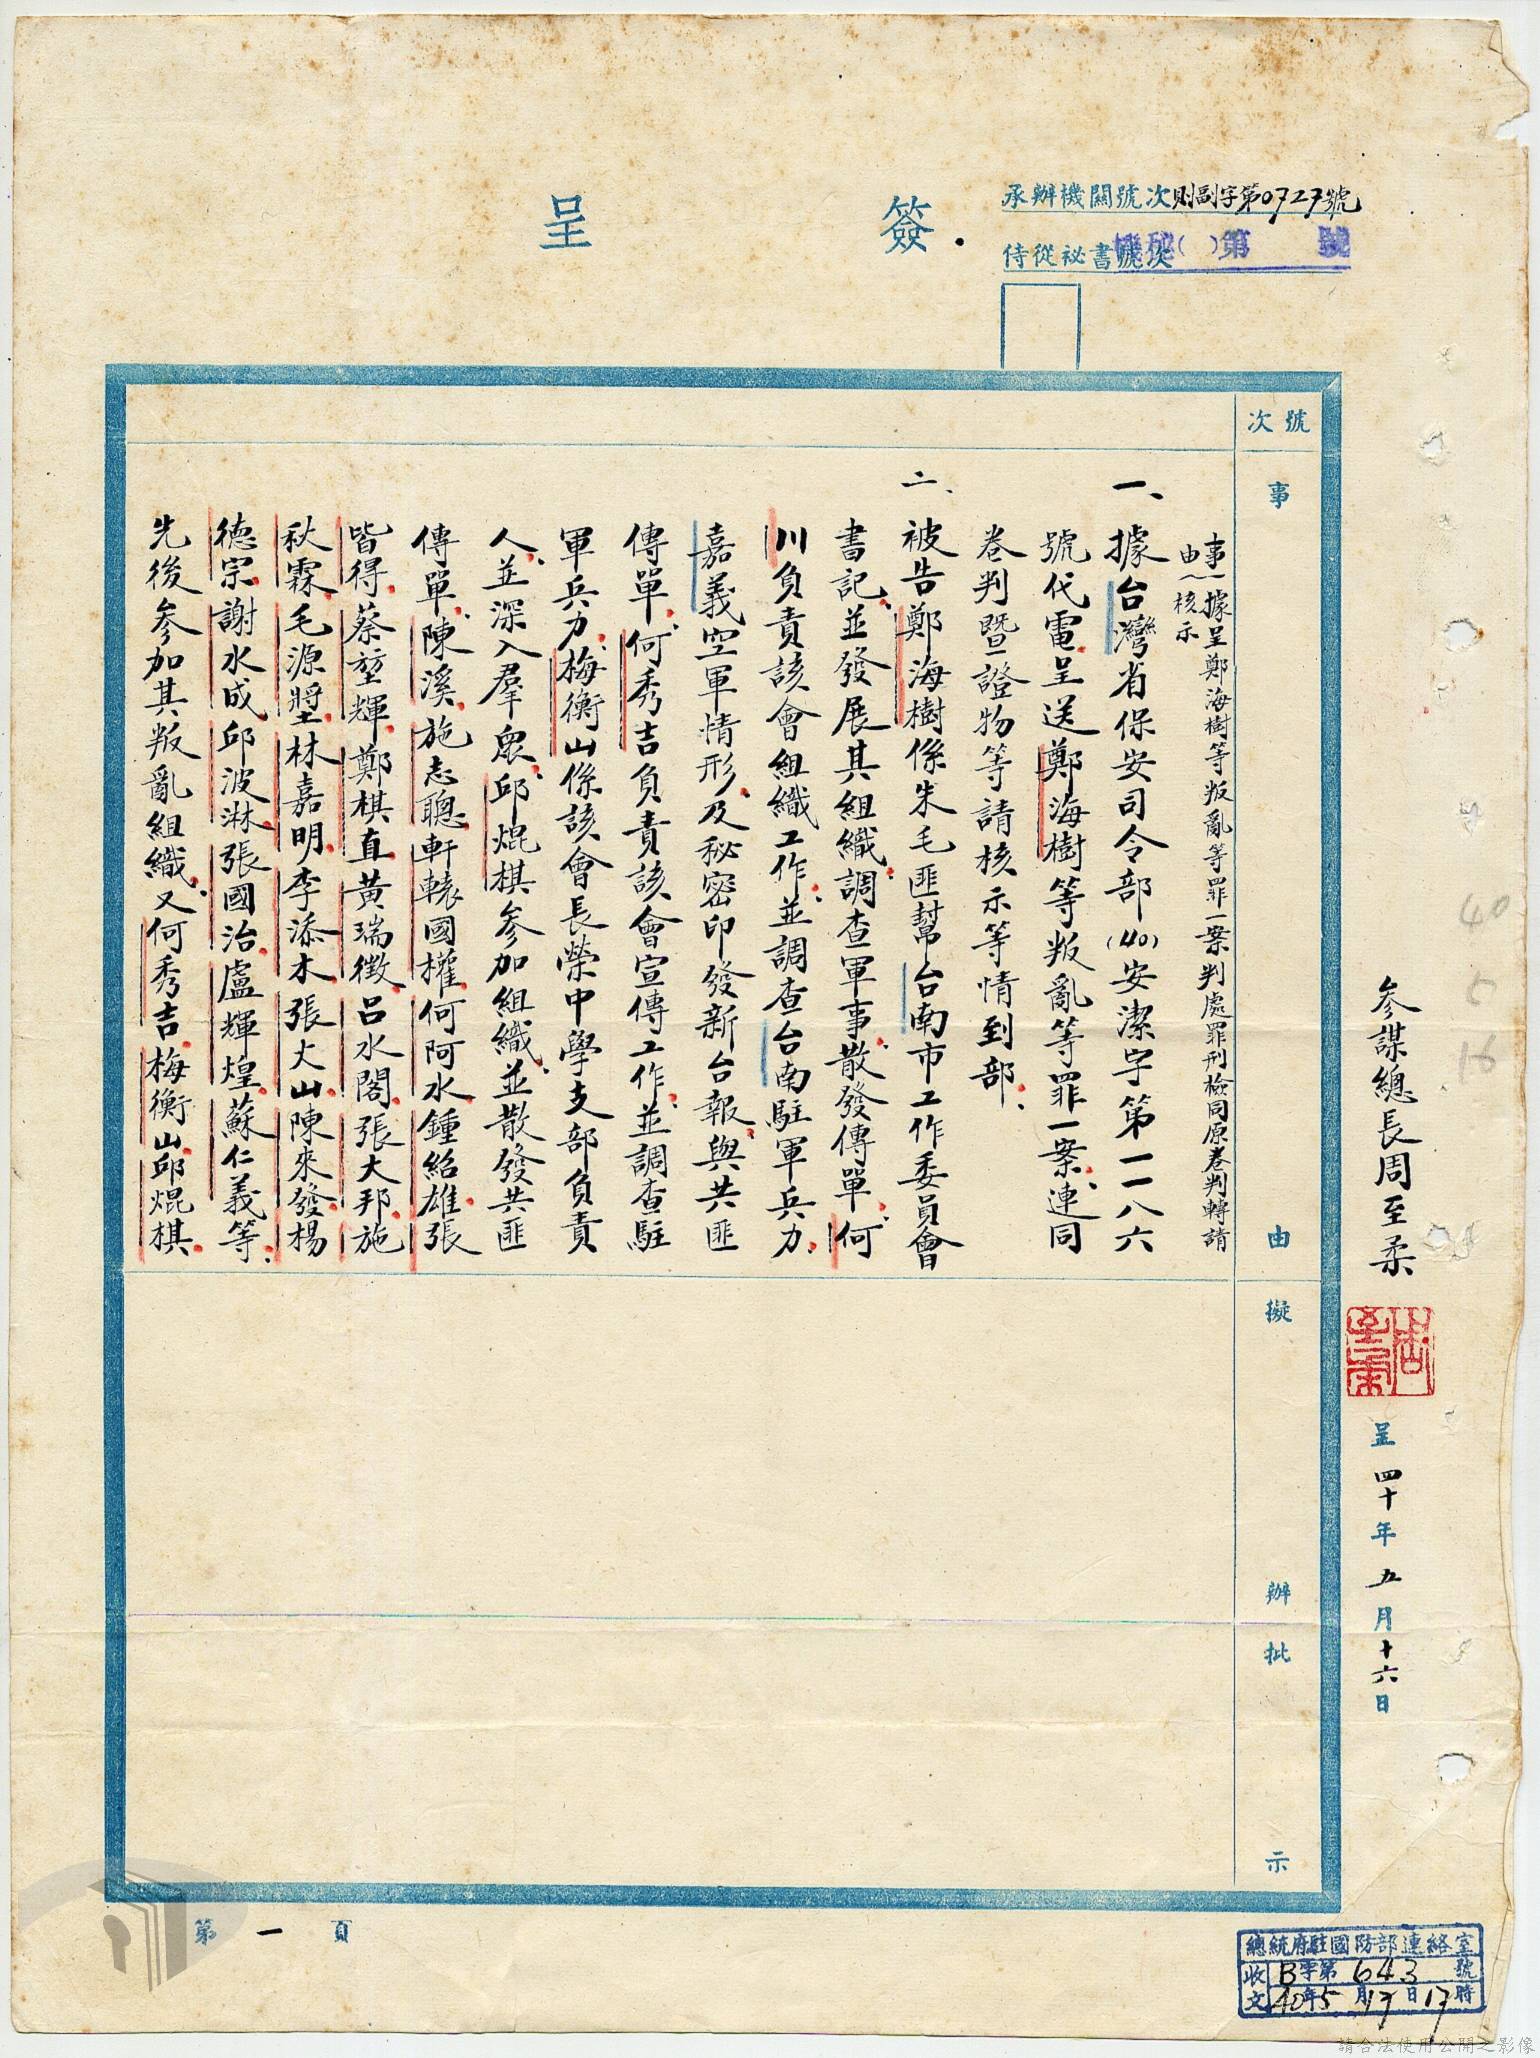 簽呈
承辦機關號次則副字第0727號
侍從祕書號次
機祕( )第 號
參謀總長周至柔
周至柔
呈 四十年五月十六日
40 5 16
號次
事由
擬辦
批示
事由〈據呈鄭海樹等叛亂等罪一案判處罪刑檢同原卷判轉請
核示
一、據台灣省保安司令部(40)安潔字第一一八六
號代電呈送鄭海樹等叛亂等罪一案連同
卷判暨證物等請核示等情到部
二、被告鄭海樹係朱毛匪幫台南市工作委員會
書記並發展其組織調查軍事散發傳單何
川負責該會組織工作並調查台南駐軍兵力
嘉義空軍情形及秘密印發新台報與共匪
傳單何秀吉負責該會宣傳工作並調查駐
軍兵力梅衡山係該會長榮中學支部負責
人並深入羣眾邱焜棋參加組織並散發共匪
傳單陳溪施志聰軒轅國權何阿水鍾紹雄張
皆得蔡堃輝鄭棋直黃瑞徵呂水閣張大邦施
秋霖毛源堃林嘉明李添木張大山陳來發楊
德宗謝水成邱波淋張國治盧輝煌蘇仁義等
先後參加其叛亂組織又何秀吉梅衡山邱焜棋
第一頁
總統府駐國防部連絡室
收文 B字第643號
40年5月17日17時
請合法使用公開之影像